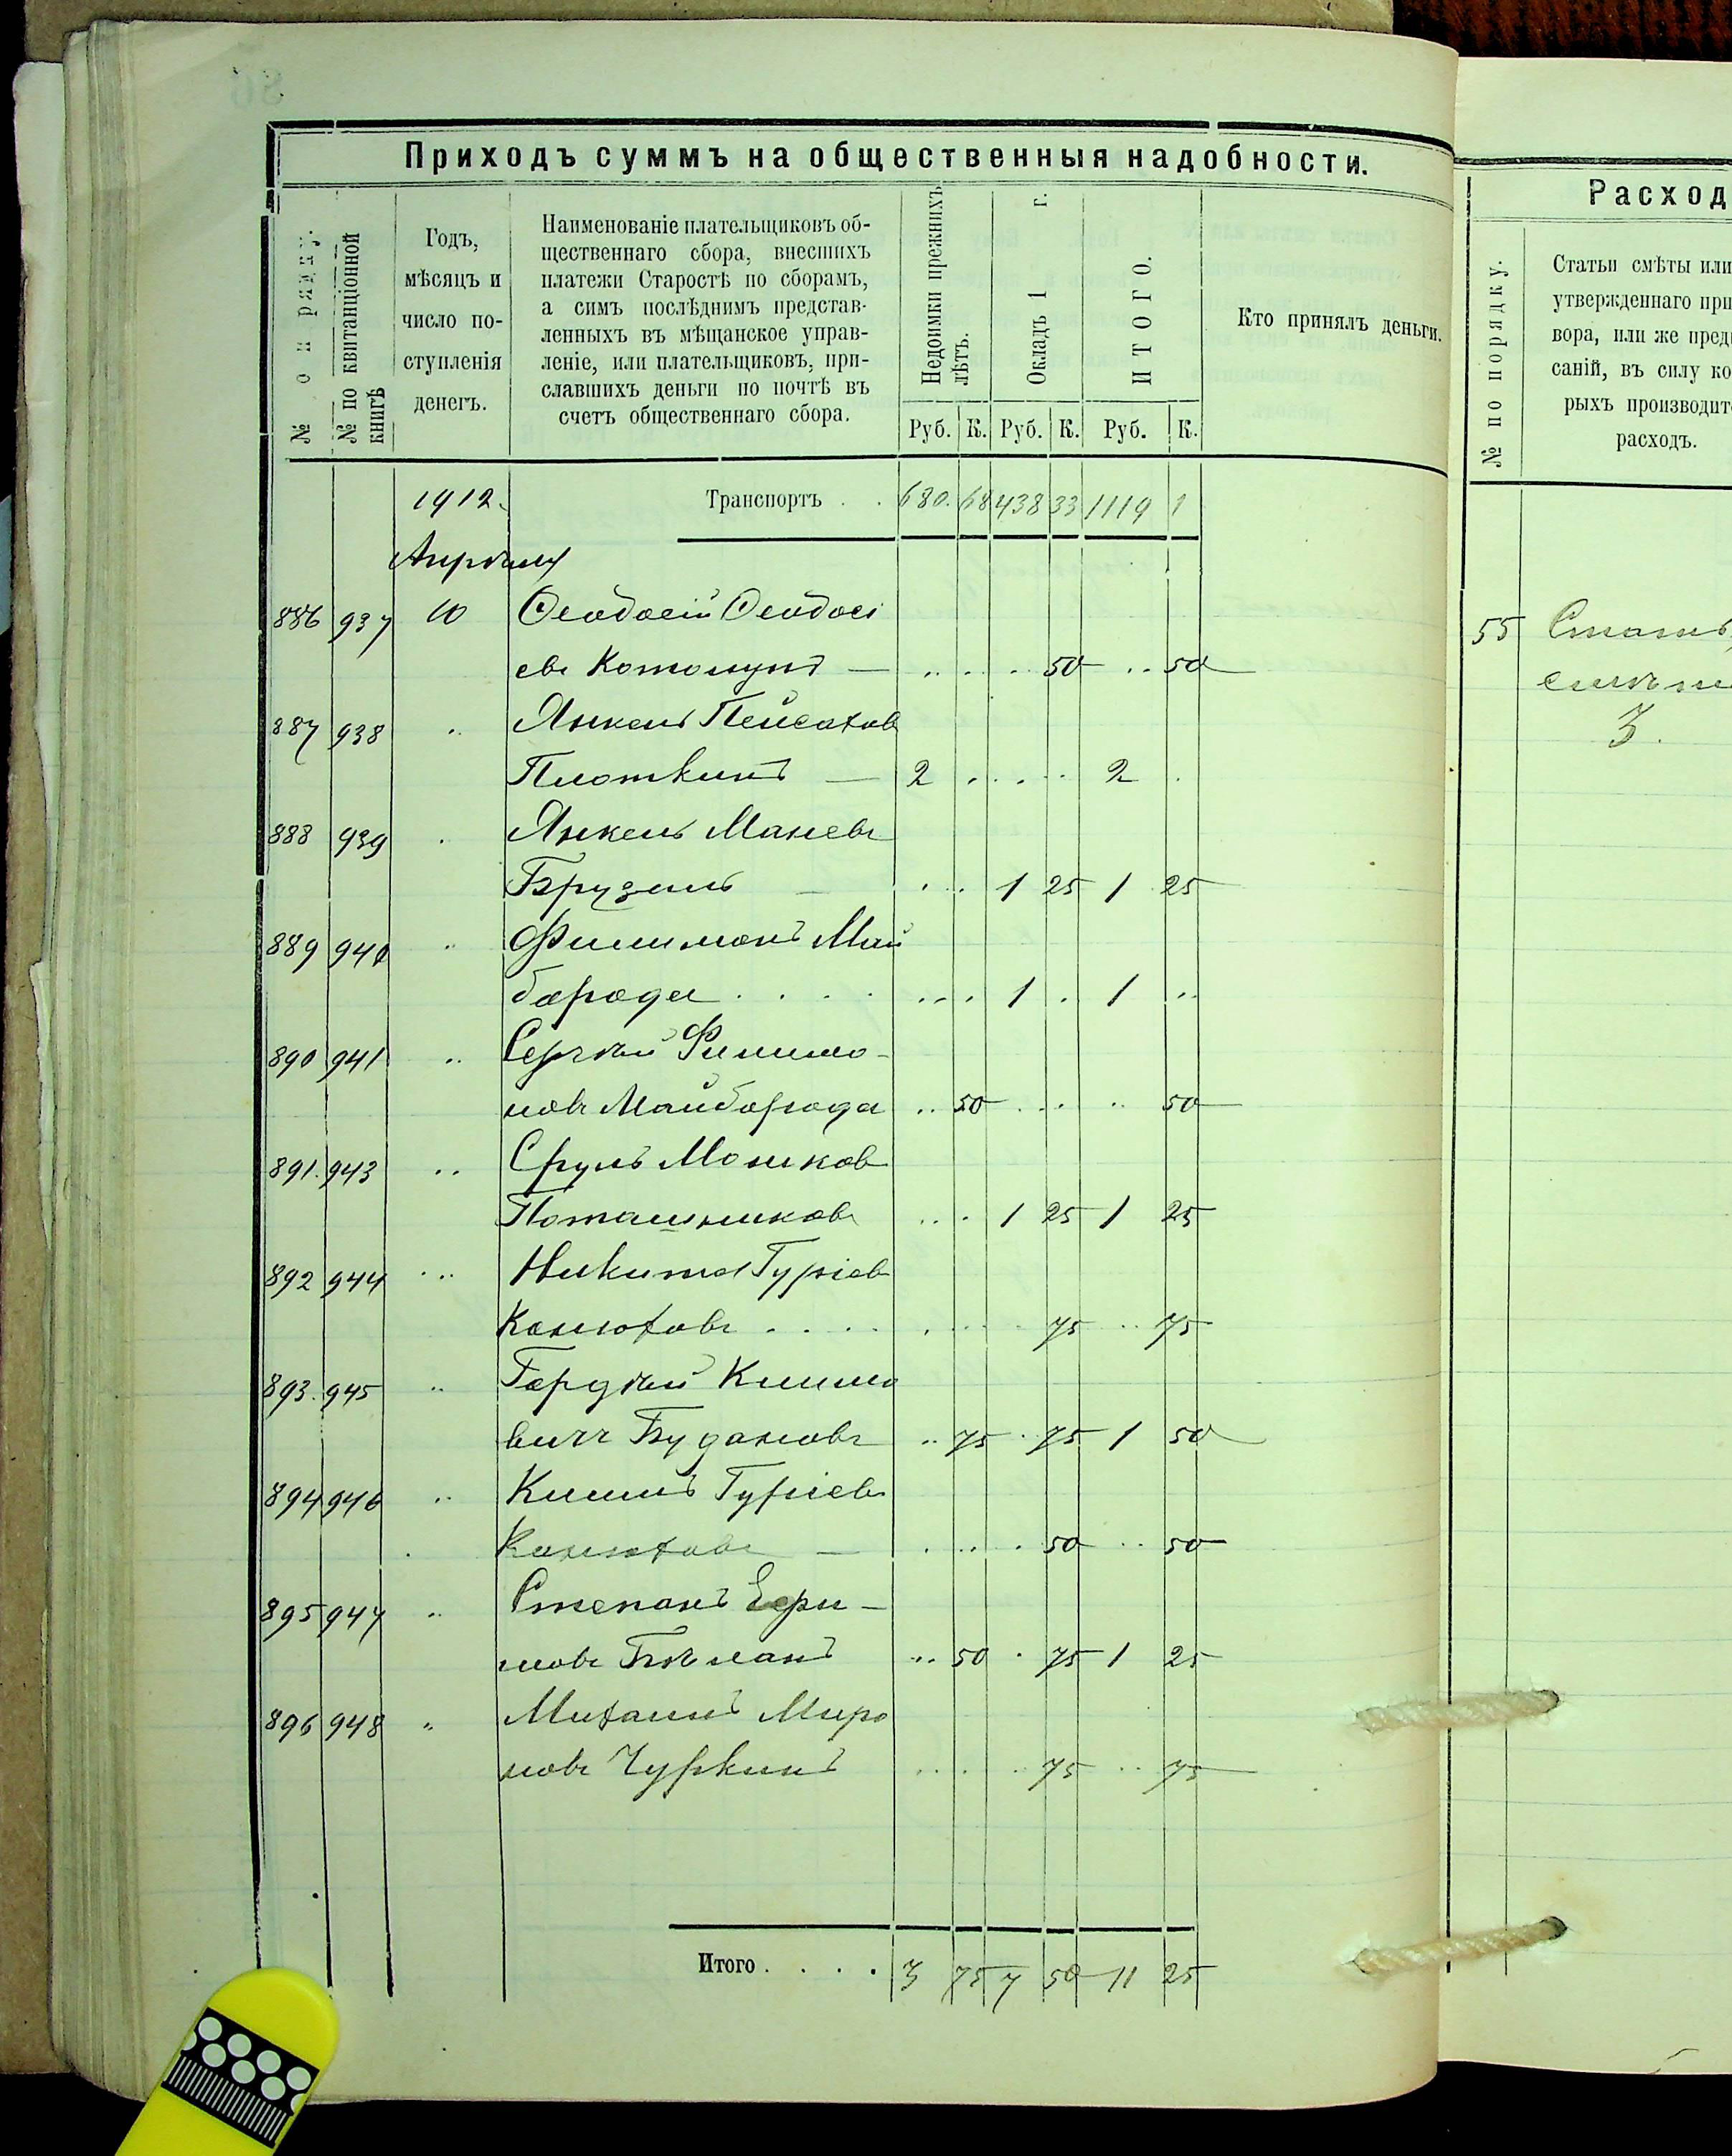 Приходъ суммъ на общественныя надобности.
№ по ряду.
№ по квитанціонной книгѣ
Годъ,
мѣсяцъ и
число по-
ступленія
денегъ.
Наименованіе плательщиковъ об-
щественнаго сбора, внесшихъ
платежи Старостѣ по сборамъ,
а симъ послѣднимъ представ-
ленныхъ въ мѣщанское управ-
леніе, или плательщиковъ, при-
славшихъ деньги по почтѣ въ
счетъ общественнаго сбора.
Недоимки прежнихъ лѣтъ.
Окладъ 1 г.
ИТОГО.
Кто принялъ деньги.
Руб. К. Руб. К. Руб. К.
1912. Транспортъ . . 680. 68 438 33 1119 1
Апрѣль
886 937 10 Ѳеодосій Ѳеодосі
евъ 50 50
887 938 Янкель Пейсахов
Плоткинъ — 2 2
888 939 Янкель Маневъ
1 25 1 25
889 940 Филимонъ Май
борода . . . . 1 1
890 941 Сергѣй Филимо-
новъ Майборода 50 50
891. 943 Сруль Мошков
Поташниковъ 1 25 1 25
892 944 Никита Гуріев
Конюховъ . . . . 75 75
893. 945 Гордѣй Климо
вичъ Будановъ 75 75 1 50
894 946 Климъ Гуріевъ
Конюховъ — 50 50
895 947 Степанъ Ефи-
мовъ 50 75 1 25
896 948 " Михаилъ Миро
новъ Чуркинъ 75 75
Итого . . . . 3 75 7 50 11 25
Расход
№ по порядку.
Статьи смѣты или
утвержденнаго при
вора, или же пред
саній, въ силу ко
рыхъ производит
расходъ.
55
3.